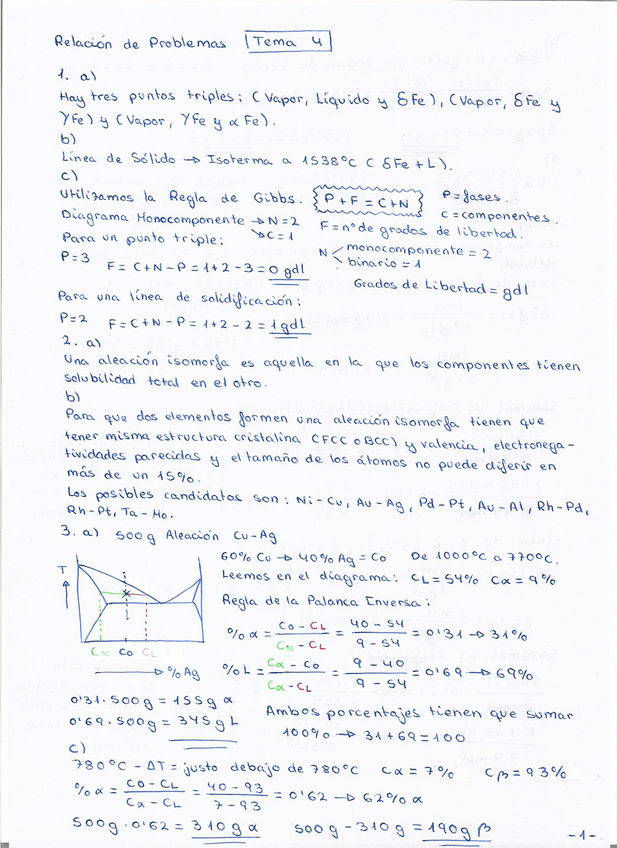 Relación de Problemas Tema 4
1. a)
Hay tres puntos triples: (Vapor, Líquido y δFe), (Vapor, δFe y
γFe) y (Vapor, γFe y αFe).
b)
Línea de Sólido → Isoterma a 1538°C (δFe + L).
c)
Utilizamos la Regla de Gibbs. P + F = C + N P = fases.
Diagrama Monocomponente → N = 2 C = componentes.
→ C = 1 F = nº de grados de libertad.
Para un punto triple: N monocomponente = 2
binario = 1
P = 3 F = C + N - P = 1 + 2 - 3 = 0 gdl
Grados de Libertad = gdl
Para una línea de solidificación:
P = 2 F = C + N - P = 1 + 2 - 2 = 1 gdl
2. a)
Una aleación isomorfa es aquella en la que los componentes tienen
solubilidad total en el otro.
b)
Para que dos elementos formen una aleación isomorfa tienen que
tener misma estructura cristalina (FCC o BCC) y valencia, electronega-
tividades parecidas y el tamaño de los átomos no puede diferir en
más de un 15%.
Los posibles candidatos son: Ni-Cu, Au-Ag, Pd-Pt, Au-Al, Rh-Pd,
Rh-Pt, Ta-Mo.
3. a) 500g Aleación Cu-Ag
60% Cu → 40% Ag = Co De 1000°C a 770°C.
T
Leemos en el diagrama: CL = 54% Cα = 9%
Regla de la Palanca Inversa:
% α = Co - CL / Cα - CL = 40 - 54 / 9 - 54 = 0'31 → 31%
Cα Co CL
→ % Ag
% L = Cα - Co / Cα - CL = 9 - 40 / 9 - 54 = 0'69 → 69%
0'31 · 500g = 155g α
0'69 · 500g = 345g L
Ambos porcentajes tienen que sumar
100% → 31 + 69 = 100
c)
780°C - ΔT = justo debajo de 780°C Cα = 7% Cβ = 93%
% α = Co - CL / Cα - CL = 40 - 93 / 7 - 93 = 0'62 → 62% α
500g · 0'62 = 310g α 500g - 310g = 190g β
-1-